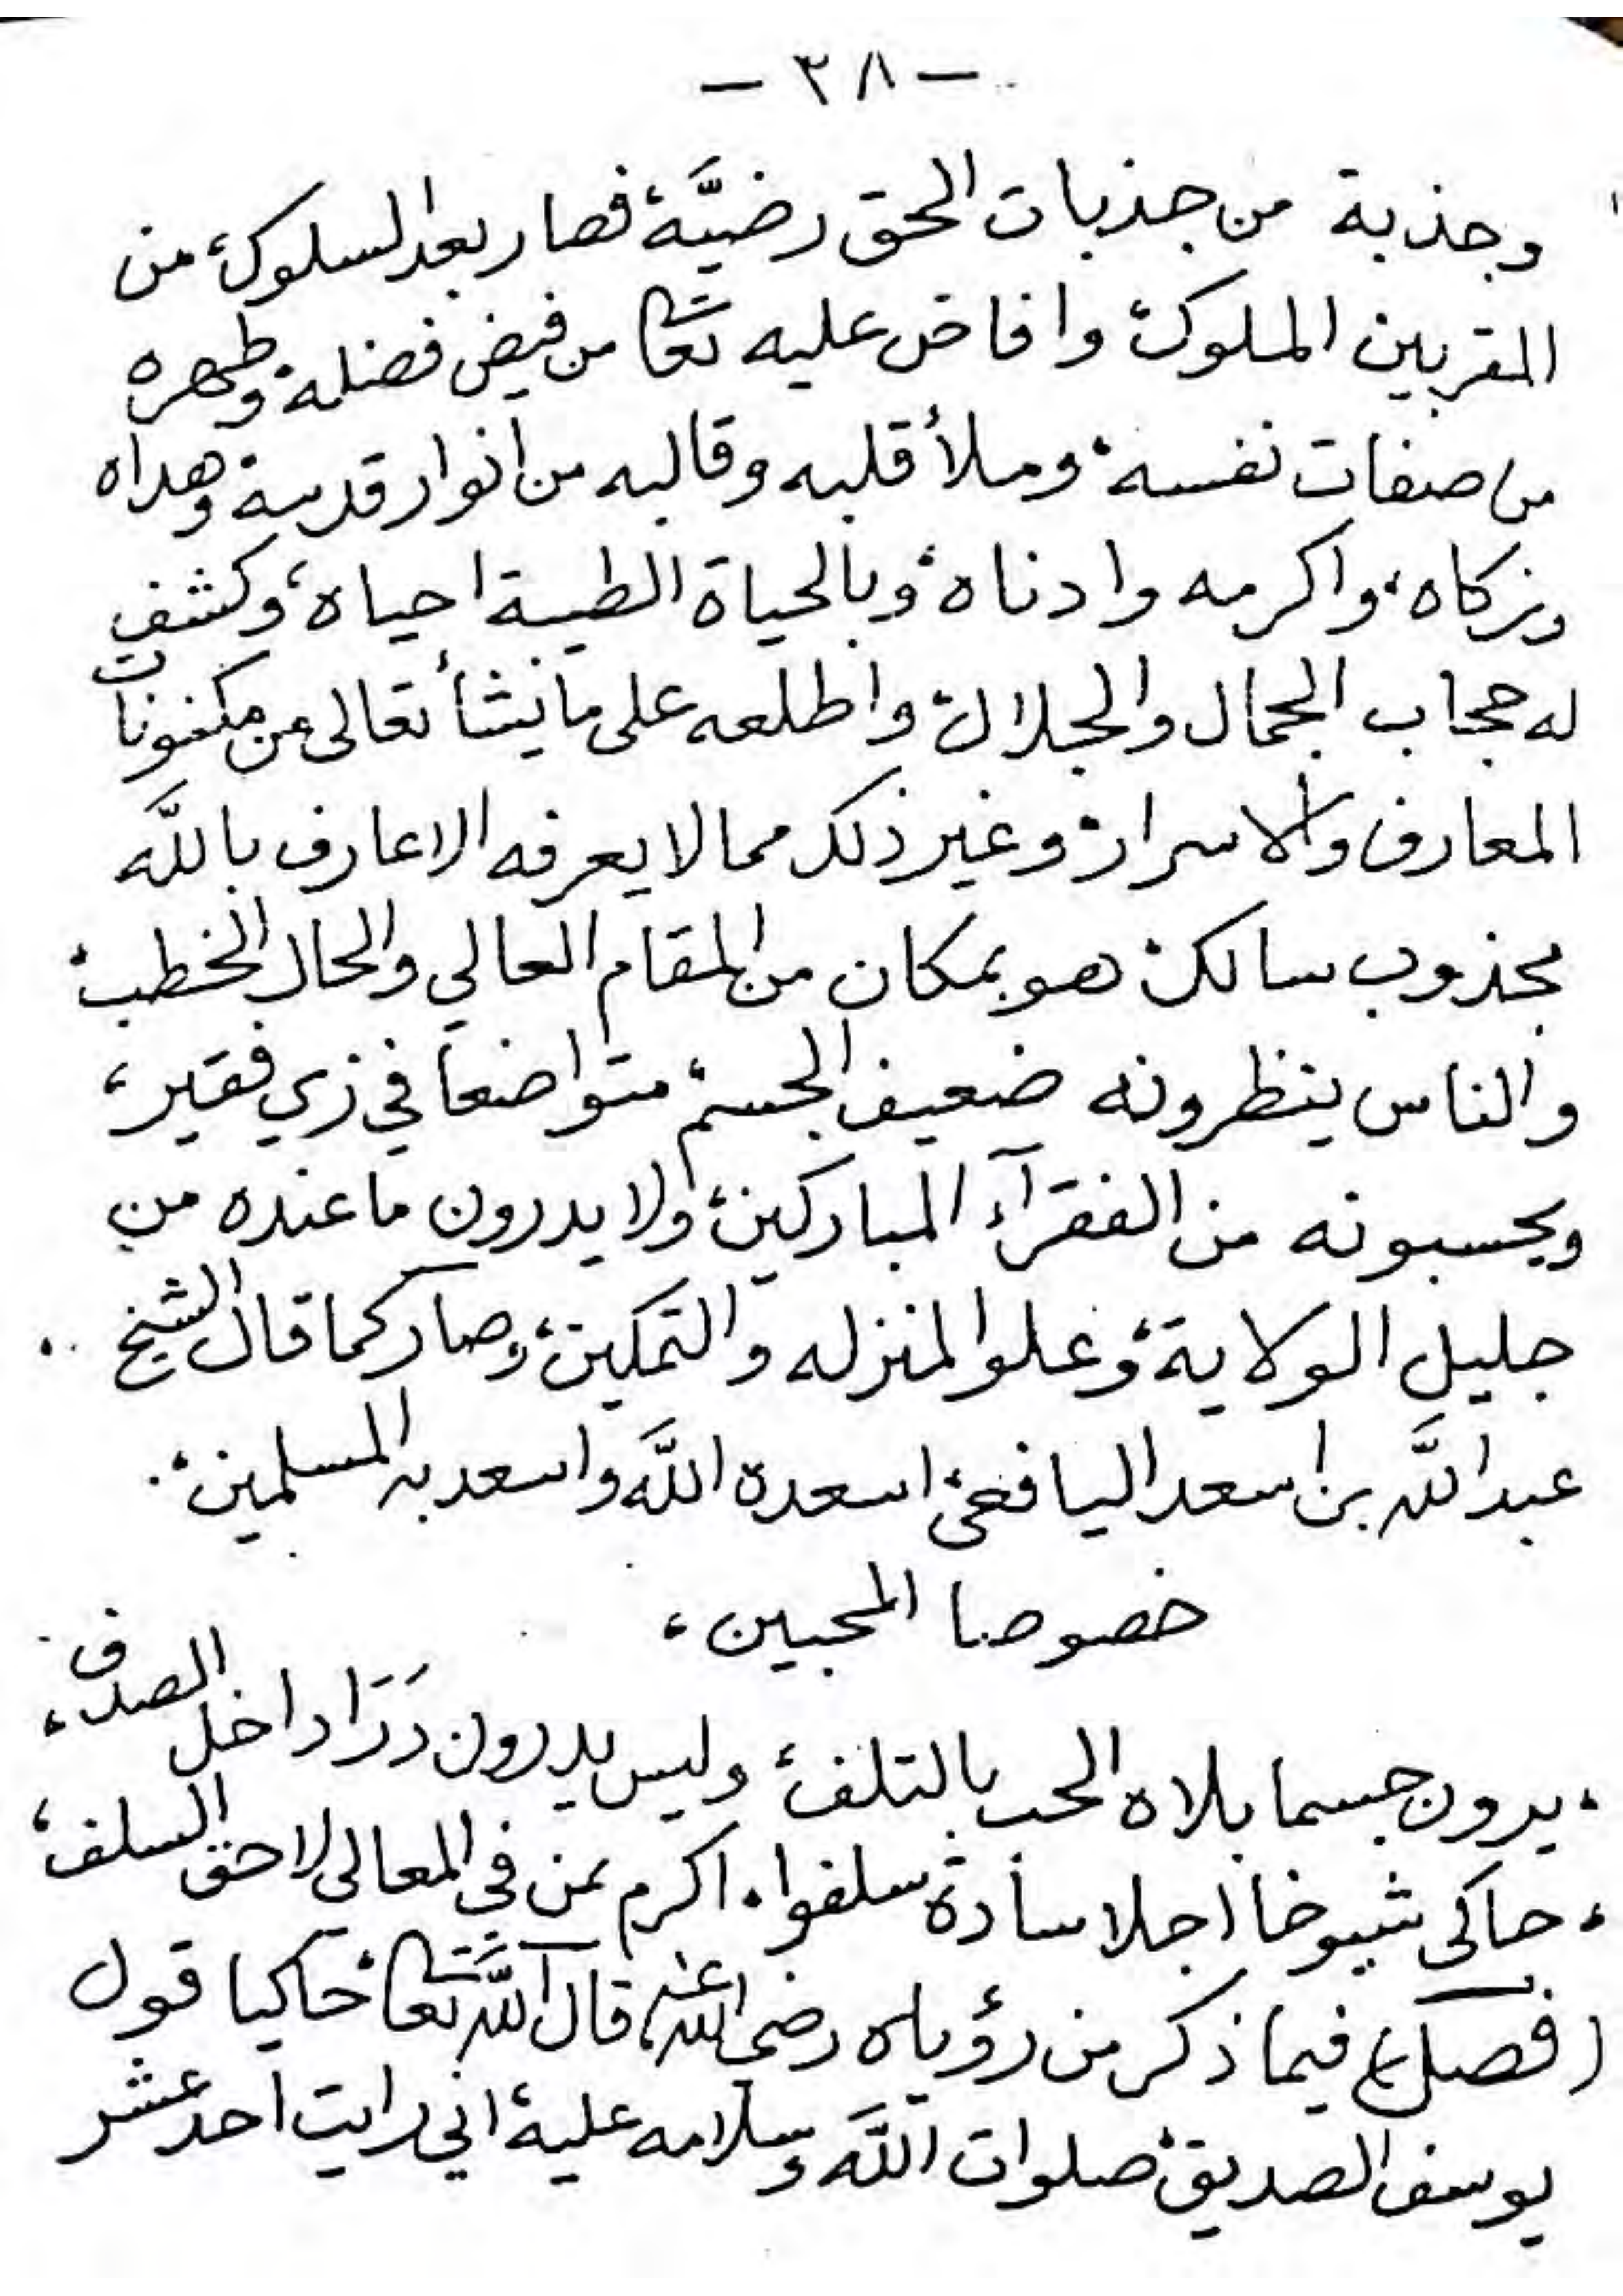 — ٣٨ —
وجذبة من جذبات الحق رضيَّة، فصار بعد السلوك، من
المقربين الملوك، وافاض عليه تعا من فيض فضله، وطهره
من صفات نفسه، وملأ قلبه وقالبه من انوار قدسه، وهداه
وزكاه، واكرمه وادناه، وبالحياة الطيبة احياه، وكشف
له حجاب الجمال والجلال، واطلعه على ما يشأ تعالى من مكنونات
المعارف والاسرار، وغير ذلك مما لا يعرفه الا عارف باللَّه
مجذوب سالك، هو بمكان من المقام العالي والحال الخطب،
والناس ينظرونه ضعيف الجسم، متواضعا في زي فقير،
ويحسبونه من الفقرآء المباركين، ولا يدرون ما عنده من
جليل الولاية، وعلو المنزله والتمكين، وصار كما قال الشيخ
عبد اللَّه بن اسعد اليافعي، اسعده اللَّه واسعد به المسلمين،
خصوصا المحبين،
، يرون جسما بلاه الحب بالتلف، وليس يدرون دَرَّا داخل الصدف،
، حاكى شيوخا اجلا سادة سلفوا، اكرم بمن في المعالى لاحق السلف،
(فصل) فيما ذكر من رؤياه رضي اللّه عنه، قال اللَّه تعا، حاكيا قول
يوسف الصديق، صلوات اللَّه وسلامه عليه، اني رايت احد عشر